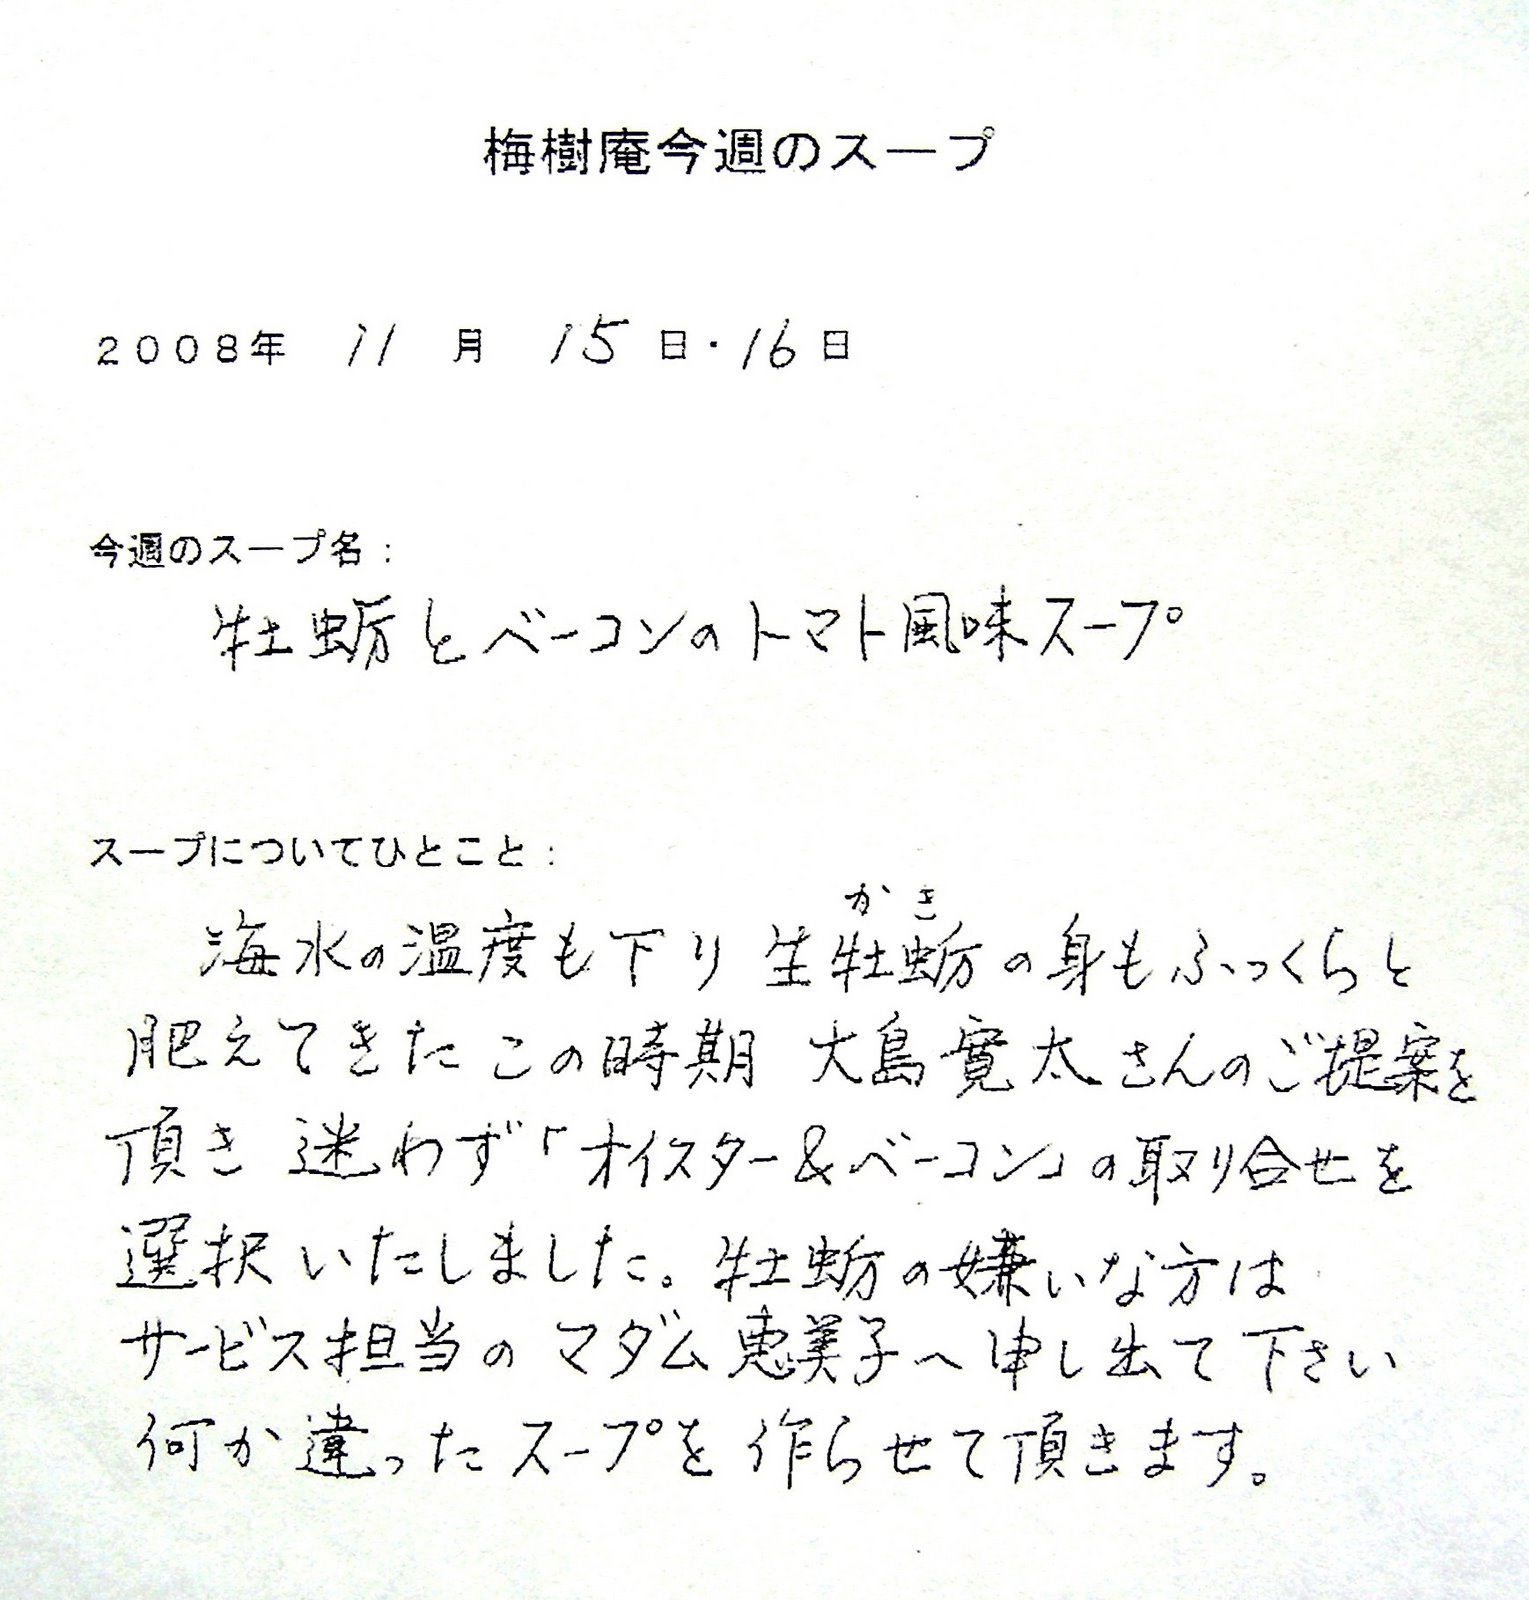 梅樹庵今週のスープ
2008年 11 月 15 日・16日
今週のスープ名：
牡蛎とベーコンのトマト風味スープ
スープについてひとこと：
かき
海水の温度も下り 生牡蛎の身もふっくらと
肥えてきたこの時期 大島寛太さんのご提案を
頂き 迷わず「オイスター&ベーコン」の取り合せを
選択いたしました。牡蛎の嫌いな方は
サービス担当のマダム恵美子へ申し出て下さい
何か違ったスープを作らせて頂きます。